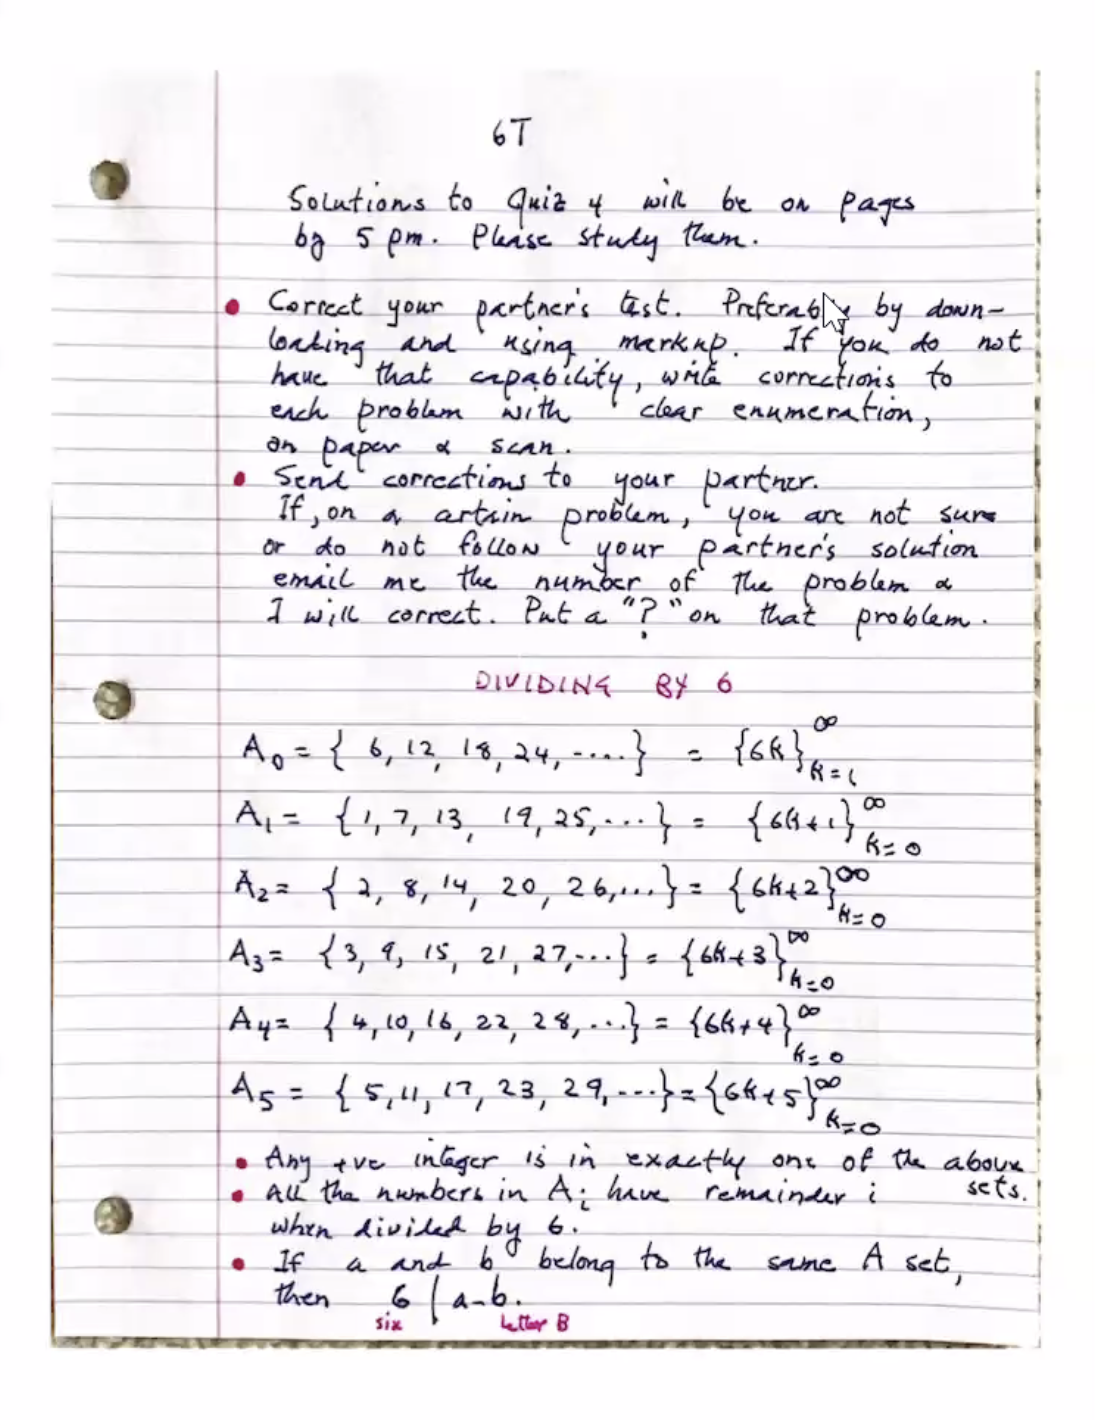 6T
Solutions to Quiz 4 will be on pages
by 5 pm. Please study them.
• Correct your partner's test. Preferably by down-
loading and using markup. If you do not
have that capability, write corrections to
each problem with clear enumeration,
on paper & scan.
• Send corrections to your partner.
If, on a certain problem, you are not sure
or do not follow your partner's solution
email me the number of the problem &
I will correct. Put a "?" on that problem.
DIVIDING BY 6
A₀ = { 6, 12, 18, 24, ....} = {6k}_{k=1}^∞
A₁ = {1, 7, 13, 19, 25, ...} = {6k+1}_{k=0}^∞
A₂ = { 2, 8, 14, 20, 26, ...} = {6k+2}_{k=0}^∞
A₃ = {3, 9, 15, 21, 27, ...} = {6k+3}_{k=0}^∞
A₄ = { 4, 10, 16, 22, 28, ...} = {6k+4}_{k=0}^∞
A₅ = { 5, 11, 17, 23, 29, ...} = {6k+5}_{k=0}^∞
• Any +ve integer is in exactly one of the above
sets.
• All the numbers in Aᵢ have remainder i
when divided by 6.
• If a and b belong to the same A set,
then 6 | a-b.
six letter B